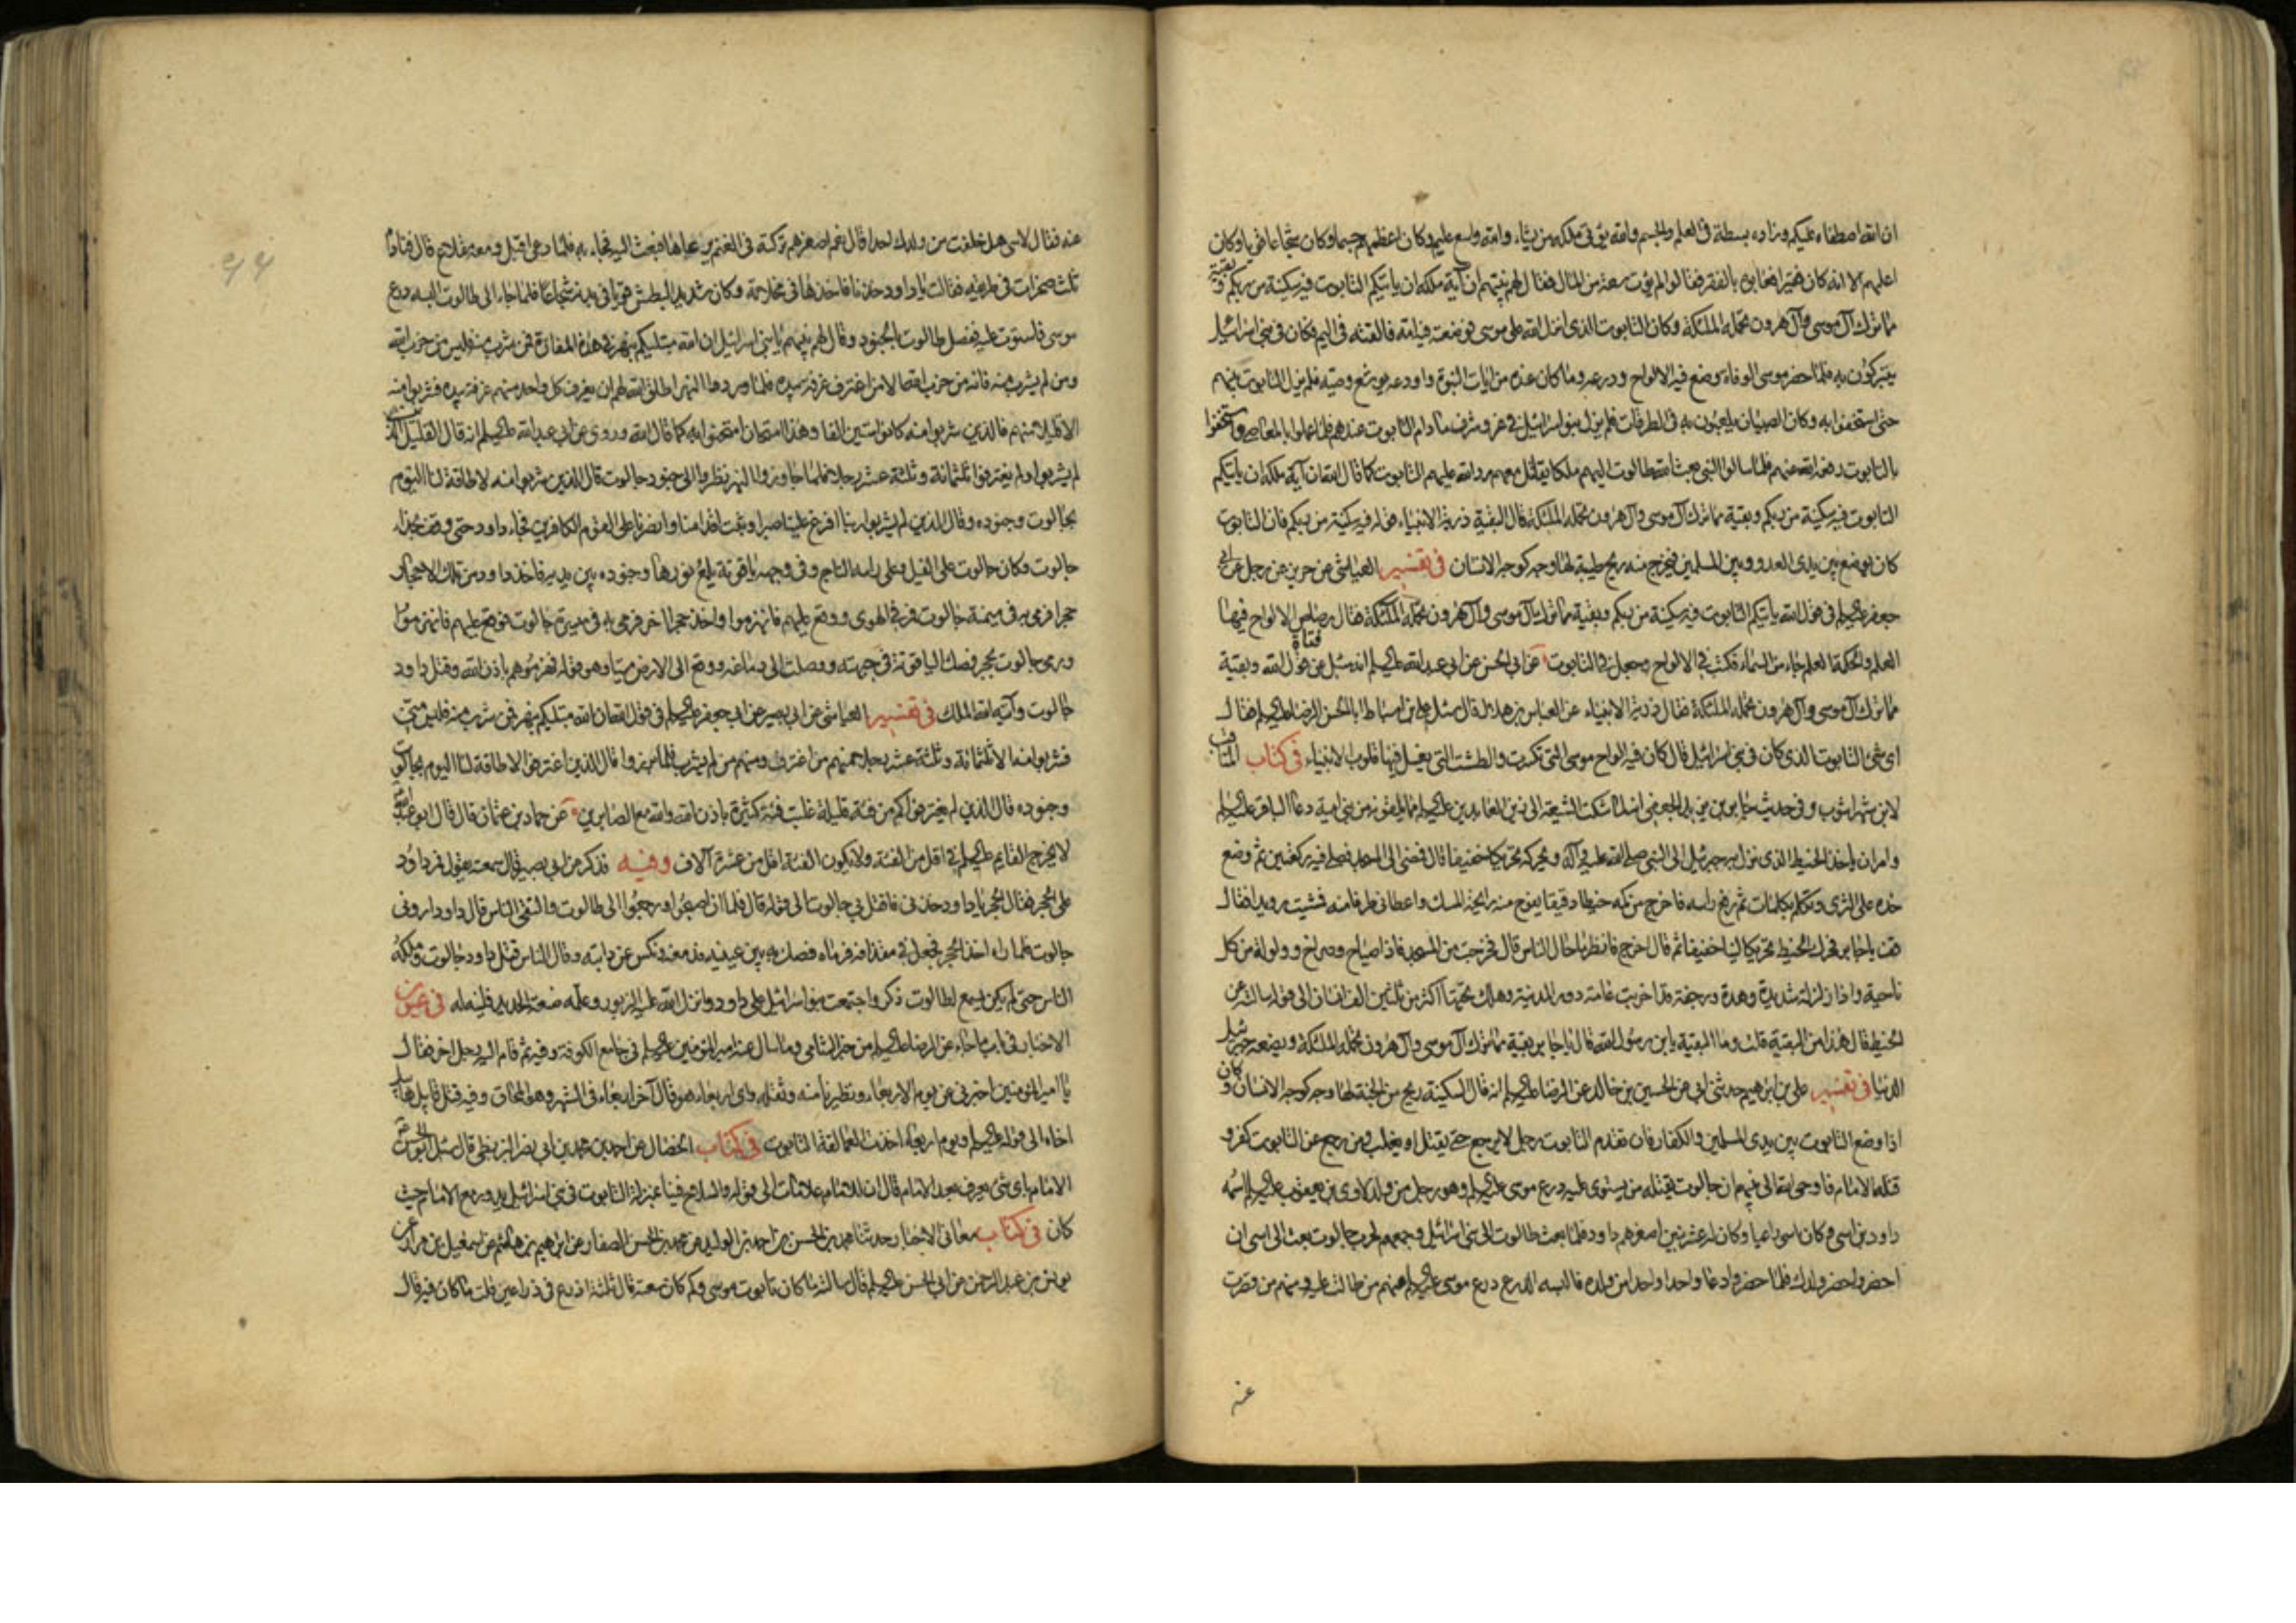 ان الله اصطفاه عليكم وزاده بسطة فى العلم والجسم والله يؤتى ملكه من يشاء والله واسع عليم وكان اعظمهم جسما وكان شجاعا قويا وكان
اعلمهم الا انه كان فقيرا فعابوه بالفقر فقالوا لم يؤت سعة من المال فقال لهم نبيهم ان آية ملكه ان ياتيكم التابوت فيه سكينة من ربكم وبقية
مما ترك آل موسى وآل هرون تحمله الملئكة وكان التابوت الذى انزل الله على موسى فوضعته فيه امه فالقته فى اليم فكان فى بنى اسرائيل
يتبركون به فلما حضر موسى الوفاة وضع فيه الالواح ودرعه وما كان عنده من ايات النبوة واودعه يوشع وصيه فلم يزل التابوت بينهم
حتى استخفوا به وكان الصبيان يلعبون به فى الطرقات فلم يزل بنو اسرائيل فى عز وشرف ما دام التابوت عندهم فلما عملوا بالمعاصى واستخفوا
بالتابوت رفعه الله عنهم فلما سالوا النبى بعث الله طالوت اليهم ملكا يقاتل معهم رد الله عليهم التابوت كما قال الله ان آية ملكه ان ياتيكم
التابوت فيه سكينة من ربكم وبقية مما ترك آل موسى وآل هرون تحمله الملئكة قال البقية ذرية الانبياء قوله فيه سكينة من ربكم فان التابوت
كان يوضع بين يدى العدو وبين المسلمين فيخرج منه ريح طيبة لها وجه كوجه الانسان فى تفسير العياشى عن حريز عن رجل عن ابى
جعفر عليه السلام فى قول الله ياتيكم التابوت فيه سكينة من ربكم وبقية مما ترك آل موسى وآل هرون تحمله الملئكة فقال رضاض الالواح فيها
العلم والحكمة العلم جاء من السماء فكتب فى الالواح وجعل فى التابوت عن ابى الحسن عن ابى عبد الله عليه السلام انه سئل عن قول الله وبقية
مما ترك آل موسى وآل هرون تحمله الملئكة فقال ذرية الانبياء عن العباس بن هلال قال سئل على بن اسباط ابا الحسن الرضا عليه السلام فقال
اى شئ التابوت الذى كان فى بنى اسرائيل قال كان فيه الواح موسى التى تكسرت والطشت التى يغسل فيها قلوب الانبياء فى كتاب المناقب
لابن شهراشوب وفى حديث جابر بن يزيد الجعفى انه لما شكت الشيعة الى زين العابدين عليه السلام مما يلقونه من بنى امية دعا الباقر عليه السلام
وامر ان ياخذ الخيط الذى نزل به جبرئيل الى النبى صلى الله عليه وآله ويحركه تحريكا خفيفا قال فمضى الى المسجد فصلى فيه ركعتين ثم وضع
خده على الثرى وتكلم بكلمات ثم رفع راسه فاخرج من كمه خيطا دقيقا يفوح منه رايحة المسك واعطانى طرفا منه فمشيت رويدا فقال
قف يا جابر فحرك الخيط تحريكا لينا خفيفا ثم قال اخرج فانظر ما حال الناس قال فخرجت من المسجد فاذا صياح وصراخ وولولة من كل
ناحية واذا زلزلة شديدة وهدة ورجفة قد اخربت عامة دور المدينة وهلك تحتها اكثر من ثلثين الف انسان الى قوله سالته عن
الخيط قال هذا من البقية قلت وما البقية يابن رسول الله قال يا جابر بقية مما ترك آل موسى وآل هرون تحمله الملئكة ويضعه جبرئيل
لدينا فى تفسير على بن ابرهيم حدثنى ابى عن الحسين بن خالد عن الرضا عليه السلام انه قال السكينة ريح من الجنة لها وجه كوجه الانسان وكان
اذا وضع التابوت بين يدى المسلمين والكفار فان تقدم التابوت رجل لا يرجع حتى يقتل او يغلب ومن رجع عن التابوت كفر و
قتله الامام فاوحى الله الى نبيهم ان جالوت يقتله من يستوى عليه درع موسى عليه السلام وهو رجل من ولد لاوى بن يعقوب عليه السلام اسمه
داود بن اسى وكان اسى راعيا وكان له عشر بنين اصغرهم داود فلما بعث طالوت الى بنى اسرائيل وجمعهم لحرب جالوت بعث الى اسى ان
احضر واحضر ولدك فلما حضروا دعا واحدا واحدا من ولده فالبسه الدرع درع موسى عليه السلام فمنهم من طالت عليه ومنهم من قصرت
عنه
94
عنه فقال لاسى هل خلفت من ولدك احدا قال نعم اصغرهم تركته فى الغنم يرعاها فبعث اليه فجاء به فلما دعى اقبل ومعه مقلاع قال فنادته
ثلث صخرات فى طريقه فقالت يا داود خذنا فاخذها فى مخلاته وكان شديد البطش قويا فى بدنه شجاعا فلما جاء الى طالوت البسه درع
موسى فاستوت عليه ففصل طالوت بالجنود وقال لهم نبيهم يا بنى اسرائيل ان الله مبتليكم بنهر فى هذه المفازة فمن شرب منه فليس من حزب الله
ومن لم يشرب منه فانه من حزب الله الا من اغترف غرفة بيده فلما وردوا النهر اطلق الله لهم ان يغرف كل واحد منهم غرفة بيده فشربوا منه
الا قليلا منهم فالذين شربوا منه كانوا ستين الفا وهذا امتحان امتحنوا به كما قال الله وروى عن ابى عبد الله عليه السلام انه قال القليل الذين
لم يشربوا ولم يغترفوا ثلثمائة وثلثة عشر رجلا فلما جاوزوا النهر نظروا الى جنود جالوت قال الذين شربوا منه لا طاقة لنا اليوم
بجالوت وجنوده وقال الذين لم يشربوا ربنا افرغ علينا صبرا وثبت اقدامنا وانصرنا على القوم الكافرين فجاء داود حتى وقف بحذاء
جالوت وكان جالوت على الفيل وعلى راسه التاج وفى وجهه ياقوتة يلمع نورها وجنوده بين يديه فاخذ داود من تلك الاحجار
حجرا فرمى به فى ميمنة جالوت فمر فى الهوى ووقع عليهم فانهزموا واخذ حجرا اخر فرمى به فى ميسرة جالوت فوقع عليهم فانهزموا
ورمى جالوت بحجر فصك الياقوتة فى جبهته ووصلت الى دماغه ووقع الى الارض ميتا وهو قوله فهزموهم باذن الله وقتل داود
جالوت وآتيه الله الملك فى تفسير العياشى عن ابى بصير عن ابى جعفر عليه السلام فى قول الله ان الله مبتليكم بنهر فمن شرب منه فليس منى
فشربوا منه الا ثلثمائة وثلثة عشر رجلا منهم من اغترف ومنهم من لم يشرب فلما برزوا قال الذين اغترفوا لا طاقة لنا اليوم بجالوت
وجنوده قال الذين لم يغترفوا كم من فئة قليلة غلبت فئة كثيرة باذن الله والله مع الصابرين عن حماد بن عثمان قال قال ابو عبد الله
لا يخرج القايم عليه السلام فى اقل من الفئة ولا يكون الفئة اقل من عشرة آلاف وفيه فذكر عن ابى بصير قال سمعته يقول فمر داود
على الحجر فقال الحجر يا داود خذنى فاقتل بى جالوت الى قوله قال فلما ان اصبحوا ورجعوا الى طالوت والتقى الناس قال داود ارونى
جالوت فلما راه اخذ الحجر فجعله فى مقذافه فرماه فصك به بين عينيه فدمغه ونكس عن دابته وقال الناس قتل داود جالوت وملكه
الناس حتى لم يكن يسمع لطالوت ذكر واجتمعت بنو اسرائيل على داود وانزل الله عليه الزبور وعلمه صنعة الحديد فلينه له فى عيون
الاخبار فى باب ما جاء عن الرضا عليه السلام من خبر الشامى وما سال عنه امير المؤمنين عليه السلام فى جامع الكوفة وفيه ثم قام اليه رجل اخر فقال
يا امير المؤمنين اخبرنى عن يوم الاربعاء وتطيرنا منه وثقله واى اربعاء هو قال آخر اربعاء فى الشهر وهو المحاق وفيه قتل قابيل هابيل
اخاه الى قوله عليه السلام ويوم اربعاء اخذت العمالقة التابوت فى كتاب الخصال عن احمد بن محمد بن ابى نصر البزنطى قال سئل ابو الحسن
الامام باى شئ يعرف بعد الامام قال ان للامام علامات الى قوله والسلاح فينا بمنزلة التابوت فى بنى اسرائيل يدور مع الامام حيث
كان فى كتاب معانى الاخبار حدثنا محمد بن الحسن بن احمد بن الوليد عن محمد بن الحسن الصفار عن ابرهيم بن هاشم عن اسمعيل بن مرار عن
يونس بن عبد الرحمن عن ابى الحسن عليه السلام قال سالته ما كان تابوت موسى وكم كان سعته قال ثلثة اذرع فى ذراعين قلت ما كان فيه قال